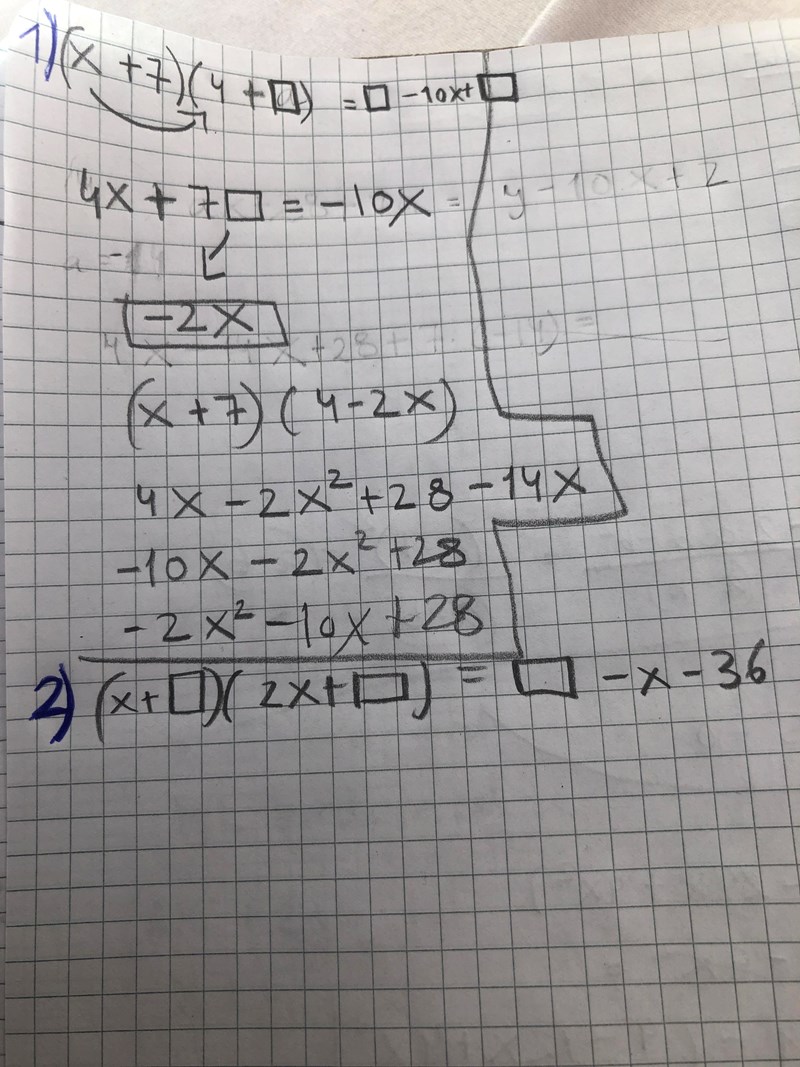 1) (x +7)(4 + □) = □ -10x+ □
4x + 7□ = -10x =
y - 10x + 2
-2x
(x +7) (4-2x)
4x -2x² +28 -14x
-10x - 2x² +28
-2x² -10x +28
2) (x+□)(2x+□) = □ -x -36